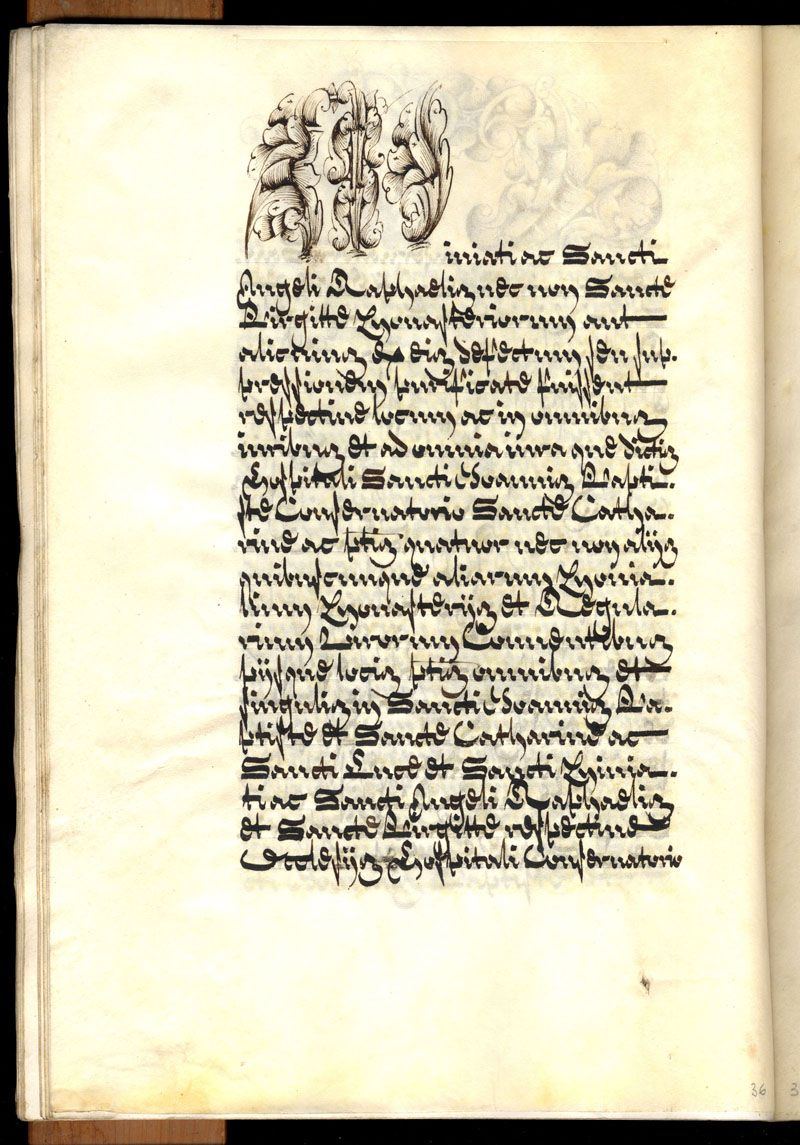 Miniati ac Sancti
Angeli Raphaelis nec non Sancte
Birgitte Monasteriorum aut
alicuius ex eis defectum seu sup-
pressionem purificate fuissent
respective locum ac in omnibus
iuribus et ad omnia iura que dictis
Hospitali Sancti Joannis Bapti-
ste Conservatorio Sancte Catha-
rine ac ptis quatuor nec non alijs
quibuscunque aliarum Monia-
lium Monasterijs et Regula-
rium Virorum Conventibus
pijsque locis ptis omnibus et
singulis in Sancti Joannis Ba-
ptiste et Sancte Catharine ac
Sancti Luce et Sancti Minia-
ti ac Sancti Angeli Raphaelis
et Sancte Birgitte respective
Ecclesijs Hospitali Conservatorio
36